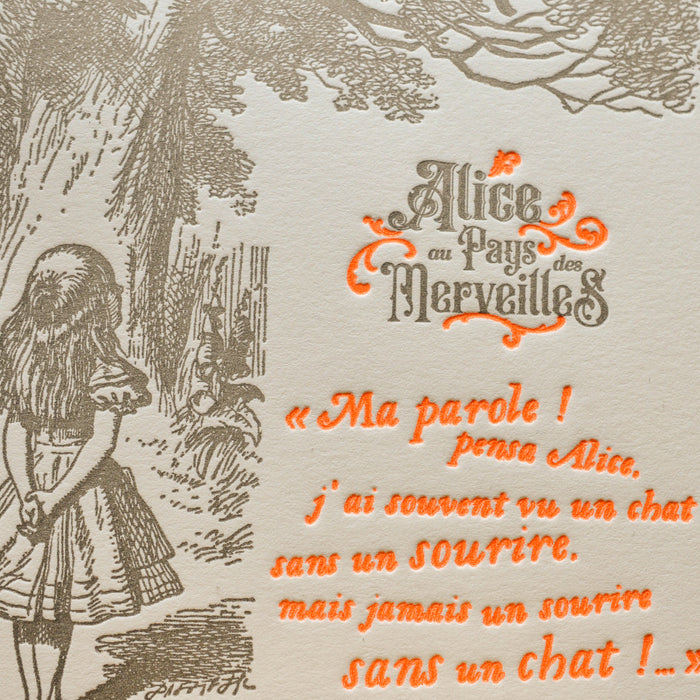 Alice
au Pays des
Merveilles
« Ma parole !
pensa Alice,
j'ai souvent vu un chat
sans un sourire,
mais jamais un sourire
sans un chat !... »